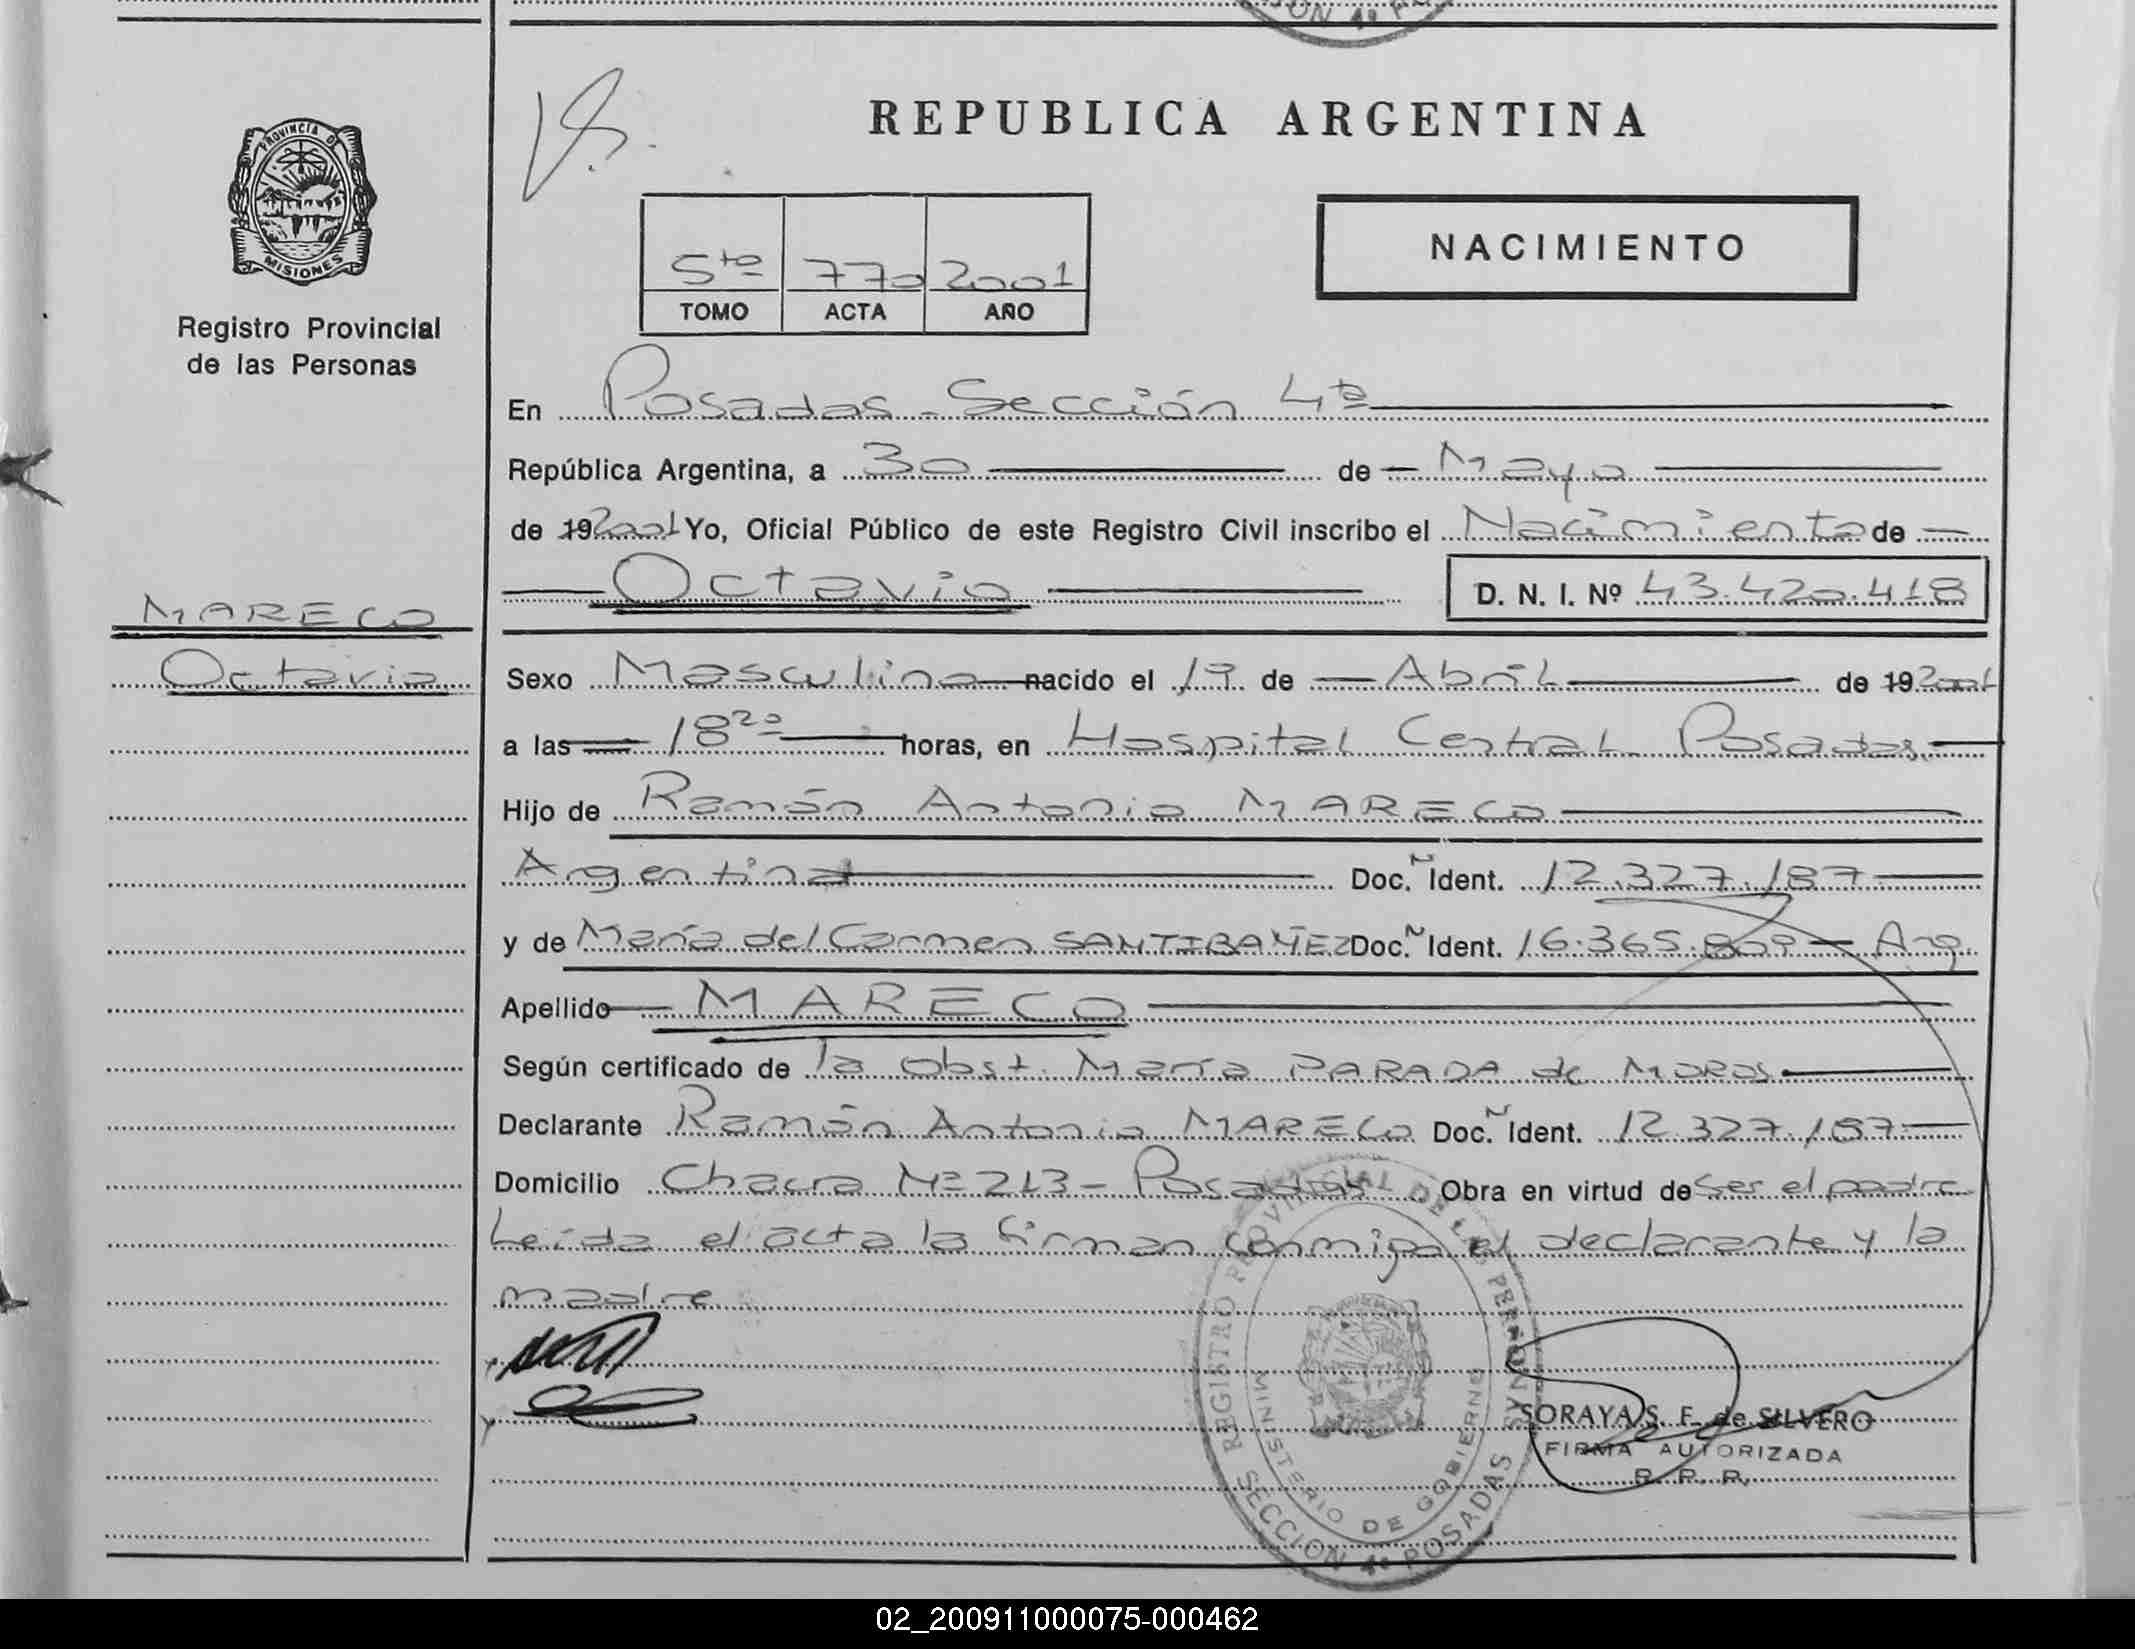 REPUBLICA ARGENTINA
PROVINCIA DE MISIONES
Registro Provincial
de las Personas
NACIMIENTO
5to 770 2001
TOMO ACTA AÑO
En Posadas - Sección 4ta
República Argentina, a 30 de Mayo
de 19 2001 Yo, Oficial Público de este Registro Civil inscribo el Nacimiento de
Octavio D. N. I. Nº 43.420.418
MARECO
Octavio
Sexo Masculino nacido el 19 de Abril de 19 2001
a las 18 20 horas, en Hospital Central Posadas
Hijo de Ramón Antonio MARECO
Argentina Doc. Ident. 12.327.187
y de María del Carmen SANTIBAÑEZ Doc. Ident. 16.365.809 - Arg.
Apellido MARECO
Según certificado de la Obst. María PARADA de MOROS
Declarante Ramón Antonio MARECO Doc. Ident. 12.327.187
Domicilio Chacra Nº 213 - Posadas Obra en virtud de ser el padre
Leída el acta la firman conmigo el declarante y la
madre
REGISTRO PROVINCIAL DE LAS PERSONAS
MINISTERIO DE GOBIERNO
SECCION 4ª POSADAS
SORAYA S. F. de SILVERO
FIRMA AUTORIZADA
R. P. P.
02_200911000075-000462